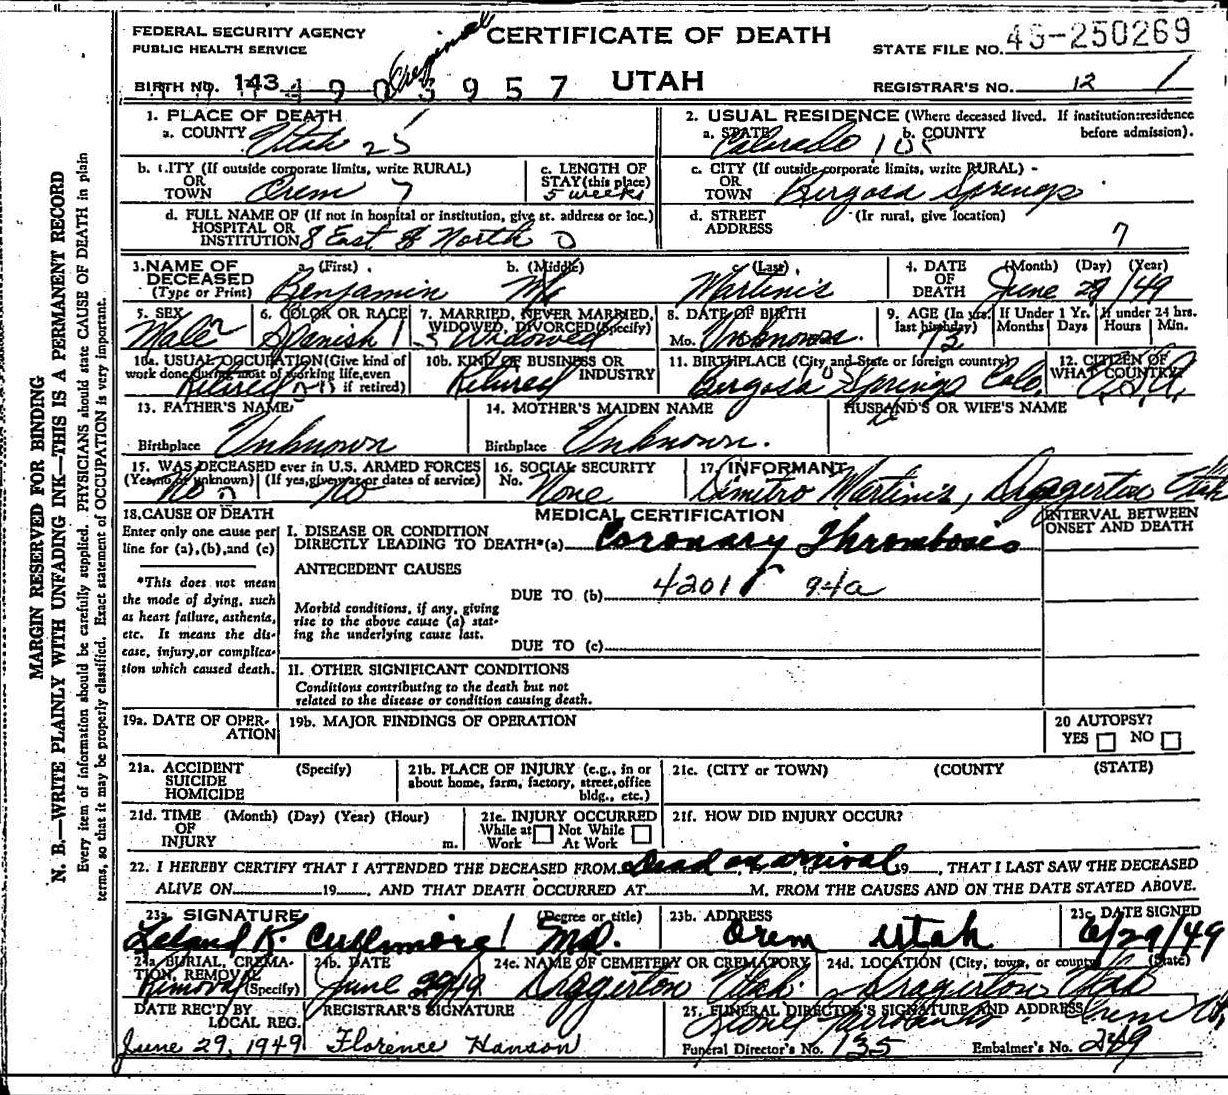 FEDERAL SECURITY AGENCY
PUBLIC HEALTH SERVICE
CERTIFICATE OF DEATH
STATE FILE NO. 49-250269
BIRTH NO. 143 490 3957
UTAH
REGISTRAR'S NO. 12
1. PLACE OF DEATH
a. COUNTY Utah 25
2. USUAL RESIDENCE (Where deceased lived. If institution:residence before admission).
a. STATE Colorado 105 b. COUNTY
b. CITY (If outside corporate limits, write RURAL) OR TOWN Orem 7
c. LENGTH OF STAY (this place) 5 weeks
c. CITY (If outside corporate limits, write RURAL) - OR TOWN Bergosa Springs
d. FULL NAME OF (If not in hospital or institution, give st. address or loc.) HOSPITAL OR INSTITUTION 8 East North 0
d. STREET ADDRESS (Ir rural, give location) 7
3. NAME OF DECEASED (Type or Print)
a. (First) Benjamin b. (Middle) c. (Last) Martinis
4. DATE OF DEATH (Month) (Day) (Year) June 29/49
5. SEX Male
6. COLOR OR RACE Spanish
7. MARRIED, NEVER MARRIED, WIDOWED, DIVORCED (Specify) Widowed
8. DATE OF BIRTH Mo. Unknown
9. AGE (In yrs. last birthday) 73 If Under 1 Yr. Months Days If under 24 hrs. Hours Min.
10a. USUAL OCCUPATION (Give kind of work done during most of working life, even if retired) Retired
10b. KIND OF BUSINESS OR INDUSTRY Retired
11. BIRTHPLACE (City and State or foreign country) Bergosa Springs Colo.
12. CITIZEN OF WHAT COUNTRY? U.S.A.
13. FATHER'S NAME
Birthplace Unknown
14. MOTHER'S MAIDEN NAME
Birthplace Unknown.
HUSBAND'S OR WIFE'S NAME
15. WAS DECEASED ever in U.S. ARMED FORCES (Yes, no or unknown) No (If yes, give war or dates of service) No
16. SOCIAL SECURITY No. None
17. INFORMANT Dimitro Martinis, Dragerton Utah
18. CAUSE OF DEATH
Enter only one cause per line for (a), (b), and (c)
*This does not mean the mode of dying, such as heart failure, asthenia, etc. It means the disease, injury, or complication which caused death.
MEDICAL CERTIFICATION
INTERVAL BETWEEN ONSET AND DEATH
I. DISEASE OR CONDITION DIRECTLY LEADING TO DEATH*(a) Coronary Thrombosis
ANTECEDENT CAUSES
DUE TO (b) 4201 94a
Morbid conditions, if any, giving rise to the above cause (a) stating the underlying cause last.
DUE TO (c)
II. OTHER SIGNIFICANT CONDITIONS
Conditions contributing to the death but not related to the disease or condition causing death.
19a. DATE OF OPERATION
19b. MAJOR FINDINGS OF OPERATION
20 AUTOPSY?
YES NO
21a. ACCIDENT SUICIDE HOMICIDE (Specify)
21b. PLACE OF INJURY (e.g., in or about home, farm, factory, street, office bldg., etc.)
21c. (CITY or TOWN) (COUNTY (STATE)
21d. TIME OF INJURY (Month) (Day) (Year) (Hour) m.
21e. INJURY OCCURRED While at Work Not While At Work
21f. HOW DID INJURY OCCUR?
22. I HEREBY CERTIFY THAT I ATTENDED THE DECEASED FROM Dead on arrival 19 , THAT I LAST SAW THE DECEASED
ALIVE ON 19 , AND THAT DEATH OCCURRED AT M. FROM THE CAUSES AND ON THE DATE STATED ABOVE.
23a. SIGNATURE (Degree or title) Leland K. Cullimore MD.
23b. ADDRESS Orem Utah
23c. DATE SIGNED 6/29/49
24a. BURIAL, CREMATION, REMOVAL (Specify) Removal
24b. DATE June 29 49
24c. NAME OF CEMETERY OR CREMATORY Dragerton Utah
24d. LOCATION (City, town, or county) (State) Dragerton Utah
DATE REC'D BY LOCAL REG. June 29, 1949
REGISTRAR'S SIGNATURE Florence Hanson
25. FUNERAL DIRECTOR'S SIGNATURE AND ADDRESS Orem
Funeral Director's No. 135 Embalmer's No. 249
MARGIN RESERVED FOR BINDING
N. B.—WRITE PLAINLY WITH UNFADING INK—THIS IS A PERMANENT RECORD
Every item of information should be carefully supplied. PHYSICIANS should state CAUSE OF DEATH in plain
terms, so that it may be properly classified. Exact statement of OCCUPATION is very important.